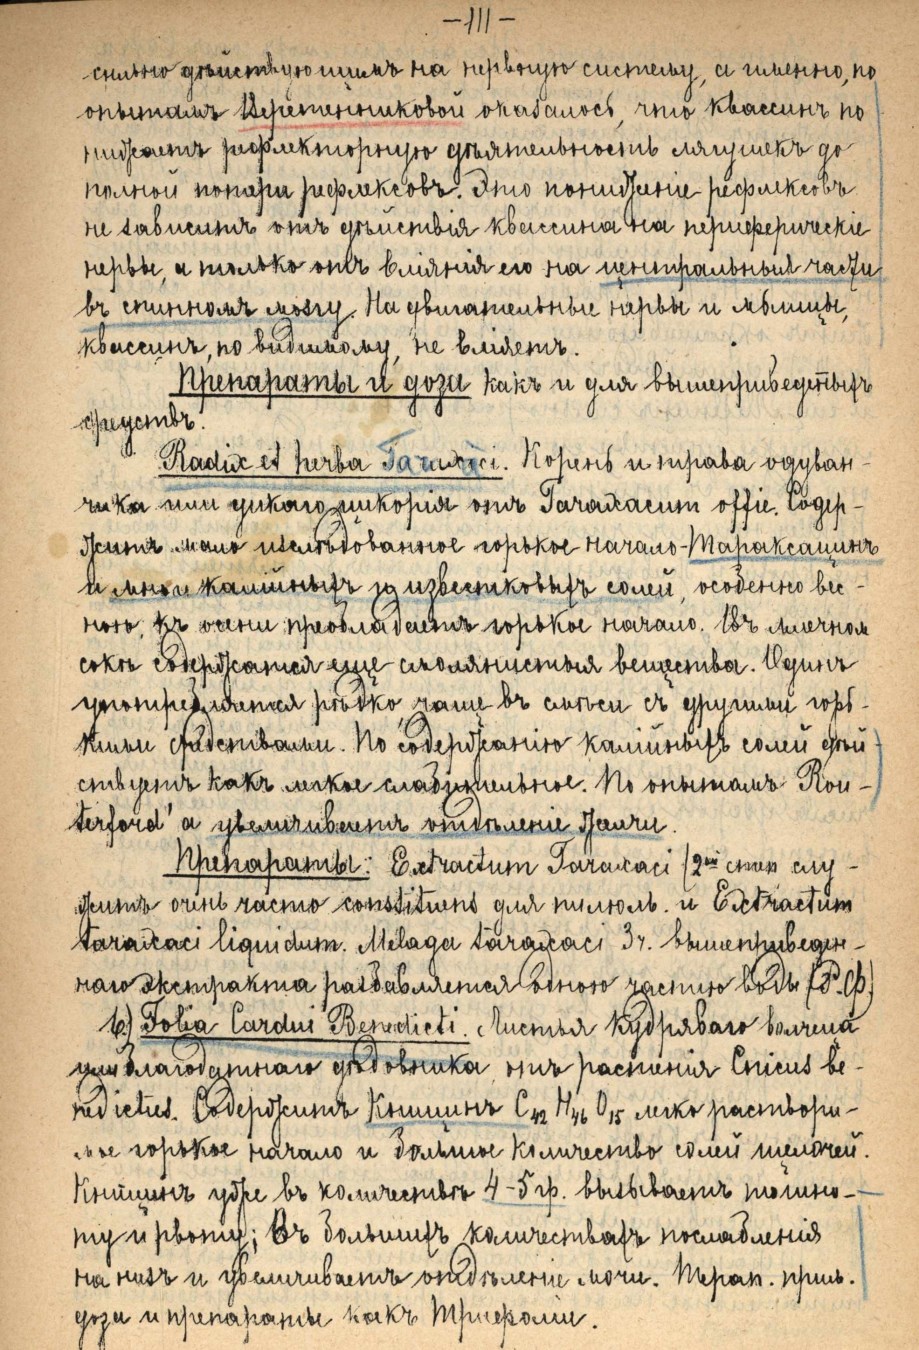 -111-
сильно дѣйствующимъ на нервную систему, а именно, по
опытамъ Веретенниковой оказалось, что квассинъ по
нижаетъ рефлекторную дѣятельность лягушекъ до
полной потери рефлексовъ. Это пониженіе рефлексовъ
не зависитъ отъ дѣйствія квассина на периферическіе
нервы, а только отъ вліянія его на центральныя части
въ спинномъ мозгу. На двигательные нервы и мышцы,
квассинъ, по видимому, не вліяетъ.
Препараты и дозы какъ и для вышеприведенныхъ
средствъ.
Radix et herba Taraxaci. Корень и трава одуван-
чика или дикаго цикорія отъ Taraxacum offic. Содер-
житъ мало изслѣдованное горькое начало-Тараксацинъ
и много калійныхъ и известковыхъ солей, особенно вес-
ною, къ осени преобладаетъ горькое начало. Въ млечном
сокѣ содержатся еще смолянистыя вещества. Одинъ
употребляется рѣдко, чаще въ смѣси съ другими горь-
кими средствами. По содержанію калійныхъ солей дѣй-
ствуетъ какъ легкое слабительное. По опытамъ Rou-
terford'а увеличиваетъ отдѣленіе желчи.
Препараты: Extractum Taraxaci (2ой степ слу-
житъ очень часто constituens для пилюль. и Extractum
taraxaci liquidum. Melaga taraxaci 3 ч. вышеприведен-
наго экстракта разбавляется одною частью воды (Р.Ф.)
в) Folia Cardui Benedicti. Листья кудряваго волчеца
или благодатнаго дѣдовника отъ растенія Cnicus be-
nedictus. Содержитъ Кницинъ C42 H46 O15 легко раствори-
мое горькое начало и большое количество солей щелочей.
Кницинъ уже въ количествѣ 4-5 гр. вызываетъ тошно-
ту и рвоту; Въ большихъ количествахъ послабленія
на низъ и увеличиваетъ отдѣленіе мочи. Терап. прим.
дозы и препараты какъ Трифоліи.